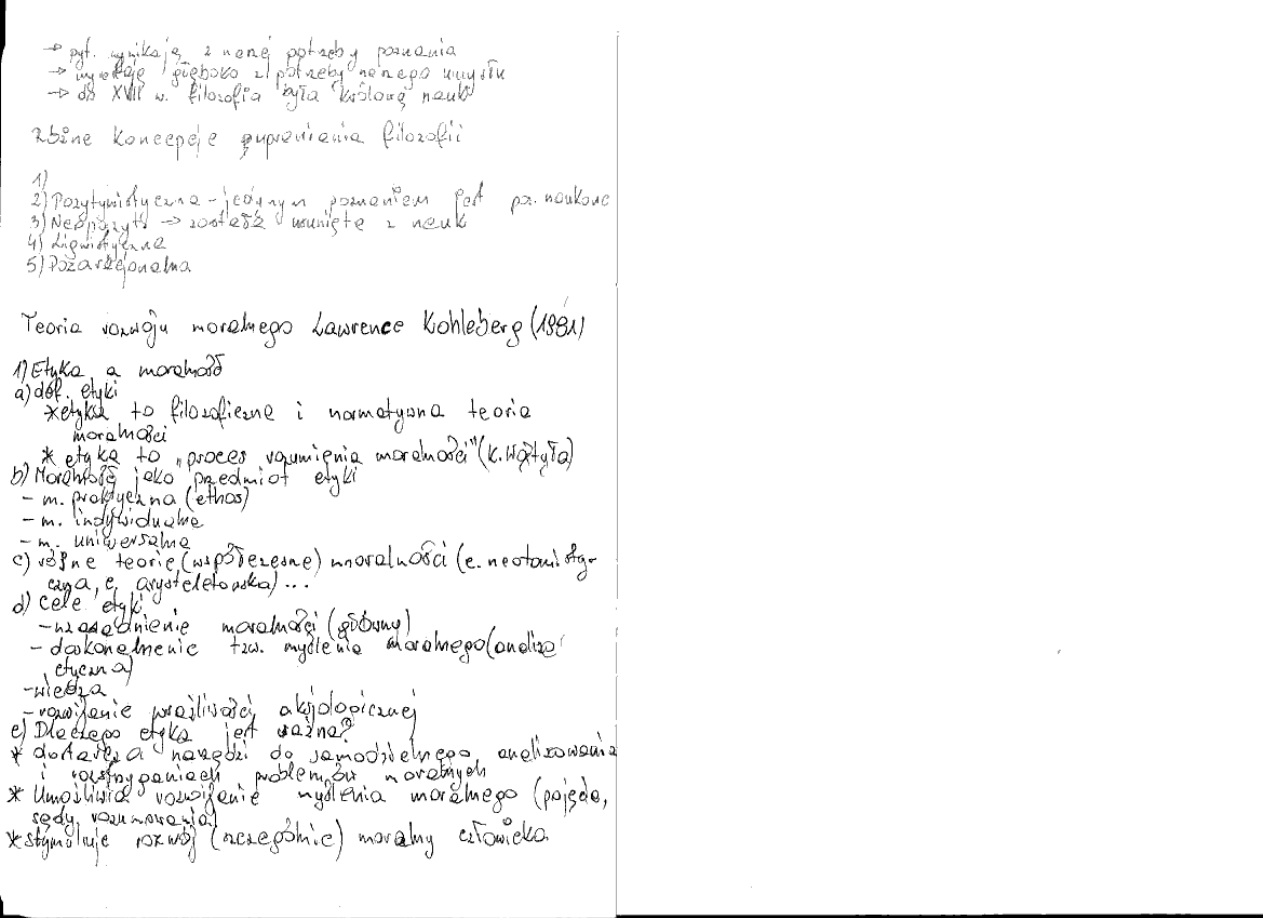 → pyt. wynikają z naszej potrzeby poznania
→ głęboko z potrzeby naszego umysłu
→ do XVIII w. filozofia była królową nauk
Różne koncepcje uprawiania filozofii
1)
2) Pozytywistyczna - jedynym poznaniem jest pz. naukowe
3) Neopozyt. → została usunięta z nauk
4) Lingwistyczna
5) Pozaracjonalna
Teoria rozwoju moralnego Lawrence Kohleberg (1981)
1) Etyka a moralność
a) def. etyki
* etyka to filozoficzne i normatywna teoria
moralności
* etyka to „proces rozumienia moralności" (K. Wojtyła)
b) Moralność jako przedmiot etyki
- m. praktyczna (ethos)
- m. indywidualne
- m. uniwersalne
c) różne teorie (współczesne) moralności (e. neotomisty-
czna, e. arystotelowska) ...
d) Cele etyki
- uzasadnienie moralności (główny)
- doskonalenie tzw. myślenia moralnego (analiza
etyczna)
- wiedza
- rozwijanie wrażliwości aksjologicznej
e) Dlaczego etyka jest ważna?
* dostarcza narzędzi do samodzielnego analizowania
i rozstrzyganiach problemów moralnych
* Umożliwia rozwijanie myślenia moralnego (pojęcia,
sądy, rozumowania)
* stymuluje rozwój (szczególnie) moralny człowieka